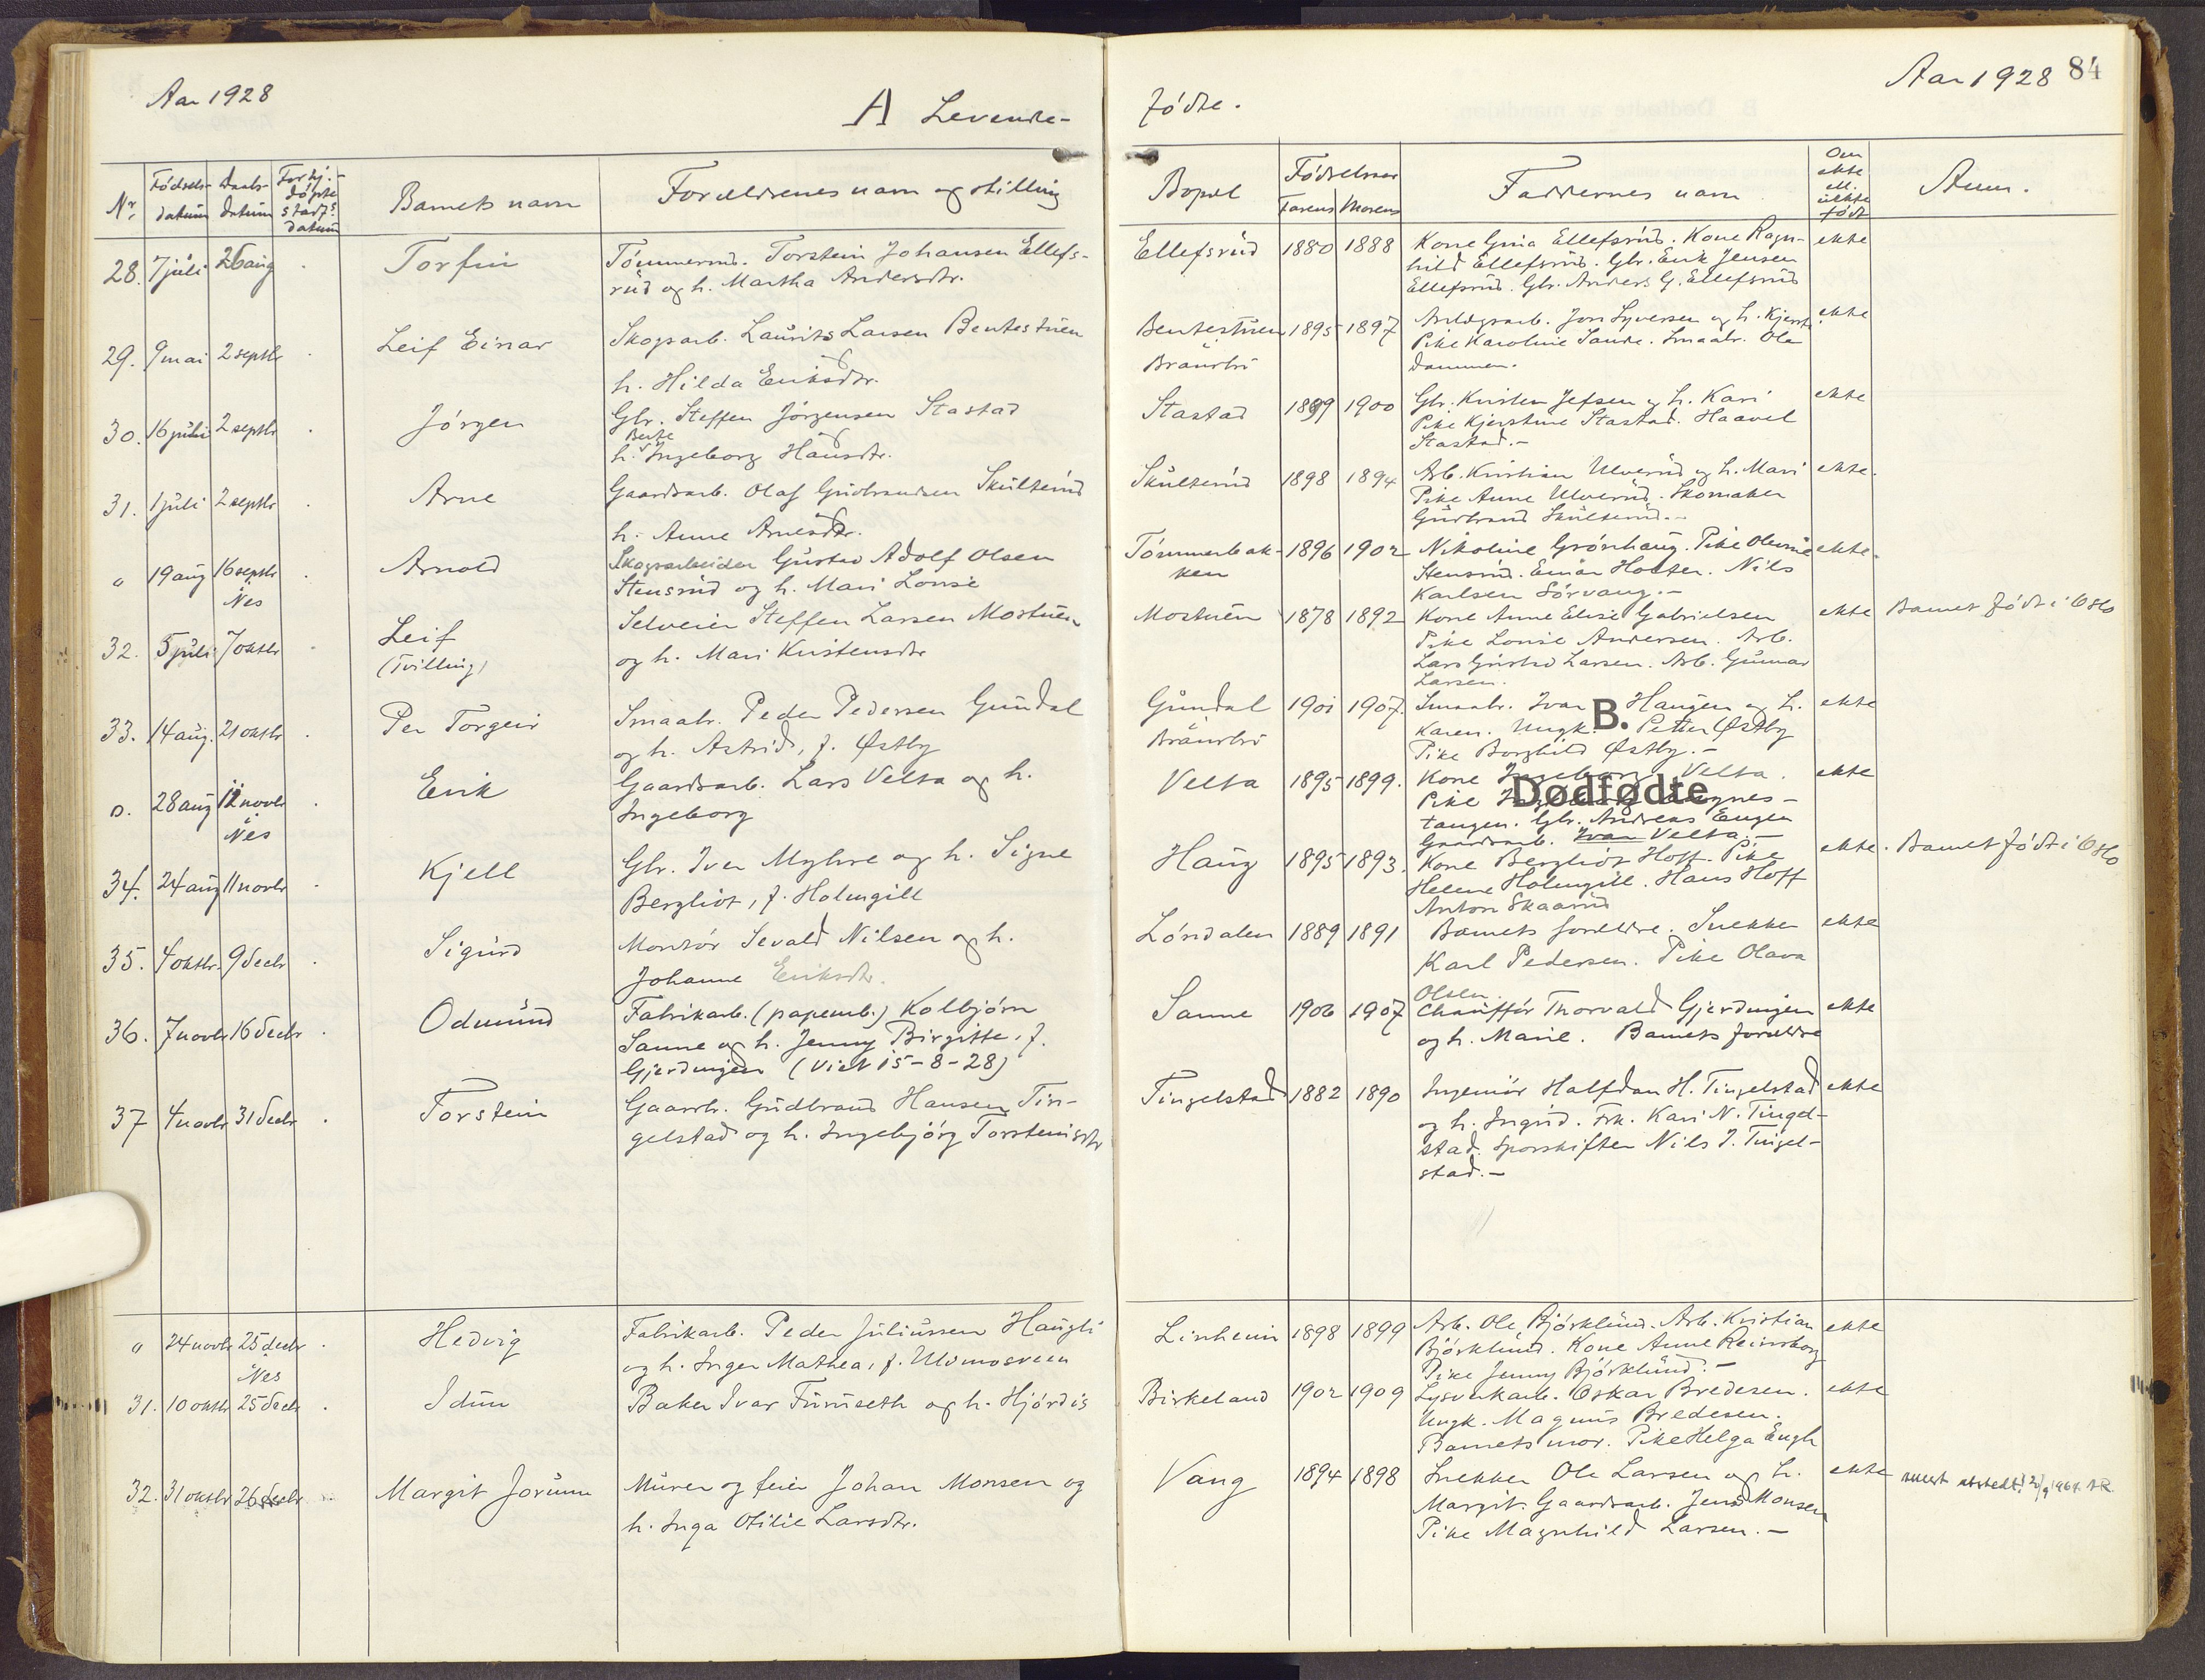 Aar 1928
A Levende-
Nr. Fødsels-datum Daabs-datum Forhj.-døpte stadf. datum Barnets navn Foreldrenes navn og stilling
28. 7 juli 26 aug Torfin Tømmermd. Torstein Johansen Ellefs-
rud og h. Martha Andersdtr.
29. 9 mai 2 septbr Leif Einar Skogsarb. Laurits Larsen Bentestuen
h. Hilda Eriksdtr.
30. 16 juli 2 septbr Jørgen Gbr. Steffen Jørgensen Stastad
Berte
h. Ingeborg Hansdtr.
31. 1 juli 2 septbr Arne Gaardsarb. Olaf Gudbrandsen Skulterud
h. Anne Arnesdtr.
0 19 aug 16 septbr Arnold Skogsarbeider Gustav Adolf Olsen
Nes Stensrud og h. Mari Louise
32. 5 juli 7 oktbr Leif Selveier Steffen Larsen Mostuen
(Tvilling) og h. Mari Kristensdtr
33. 14 aug. 21 oktbr Per Torgeir Smaabr. Peder Pedersen Gundal
og h. Astrid, f. Østby
0. 28 aug 12 novbr Erik Gaardsarb. Lars Velta og h.
Nes Ingeborg
34. 24 aug 11 novbr Kjell Gbr. Iver Myhre og h. Signe
Bergliot, f. Holmgill
35. 4 oktbr. 9 decbr Sigurd Montør Sevald Nilsen og h.
Johanne Eriksdtr.
36. 7 novbr 16 decbr Odmund Fabrikarb. (papemb.) Kolbjørn
Sanne og h. Jenny Birgitte, f.
Gjerdingen (viet 15-8-28)
37 4 novbr 31 decbr Torstein Gaardbr. Gudbrand Hansen Tin-
gelstad og h. Ingebjørg Torsteinsdtr
0 24 novbr 25 decbr Hedvig Fabrikarb. Peder Juliussen Haugli
Nes og h. Inger Mathea, f. Ulvmosveen
31. 10 oktbr 25 decbr Idun Baker Ivar Furuseth og h. Hjørdis
32. 31 oktbr 26 decbr Margit Jorunn Murer og feier Johan Monsen og
h. Inga Otilie Larsdtr.
Aar 1928 84
fødte.
Bopel Fødselsaar Farens Morens Faddernes navn Om ekte ell. uekte født Anm.
Ellefsrud 1880 1888 Kone Gina Ellefsrud. Kone Ragn- ekte
hild Ellefsrud. Gbr. Erik Jensen
Ellefsrud. Gbr. Anders G. Ellefsrud
Bentestuen 1895 1897 Anlegsarb. Jon Syversen og h. Kjersti ekte
Brandbu Pike Karoline Sande. Smaabr. Ole
Dammen.
Stastad 1899 1900 Gbr. Kristen Jefsen og h. Kari ekte
Pike Kjerstine Stastad. Haavel
Stastad.-
Skulterud 1898 1894 Arb. Kristian Ulverud og h. Mari ekte.
Pike Anne Ulverud. Skomaker
Gudbrand Skulterud.-
Tømmerbak- 1896 1902 Nikoline Grønhaug. Pike Olevine ekte.
ken Stensrud. Einar Holter. Nils
Karlsen Sørvang.-
Mostuen 1878 1892 Kone Anne Elise Gabrielsen ekte Barnet født i Oslo
Pike Louise Andersen. Arb.
Lars Gustav Larsen. Arb. Gunnar
Larsen.
Gundal 1901 1907. Smaabr. Ivar Haugen og h. ekte
Brandbu Karen. Ungk. Petter Østby
B.
Pike Borghild Østby.-
Velta 1895 1899. Kone Ingeborg Velta. ekte
Dødfødte
tangen. Gbr. Andreas Engen
Gaardsarb. Ivar Velta.-
Haug 1895 1893. Kone Bergliot Hoff. Pike ekte. Barnet født i Oslo
Helene Holmgill. Hans Hoff
Anton Skaarud
Løndalen 1889 1891 Barnets foreldre. Snekker ekte
Karl Pedersen. Pike Olava
Olsen
Sanne 1906 1907 Chauffør Thorvald Gjerdingen ekte
og h. Marie. Barnets foreldre
Tingelstad 1882 1890 Ingeniør Halfdan H. Tingelstad ekte
og h. Ingrid. Frk. Kari N. Tingel-
stad. Sporskifter Nils J. Tingel-
stad.-
Linheim 1898 1899 Arb. Ole Bjørklund. Arb. Kristian ekte
Bjørklund. Kone Anne Reinsborg
Pike Jenny Bjørklund.-
Birkeland 1902 1909 Lysverkarb. Oskar Bredesen. ekte
Ungk. Magnus Bredesen.
Barnets mor. Pike Helga Engh
Vang 1894 1898 Snekker Ole Larsen og h. ekte
Margit. Gaardsarb. Jens Monsen
Pike Magnhild Larsen.-